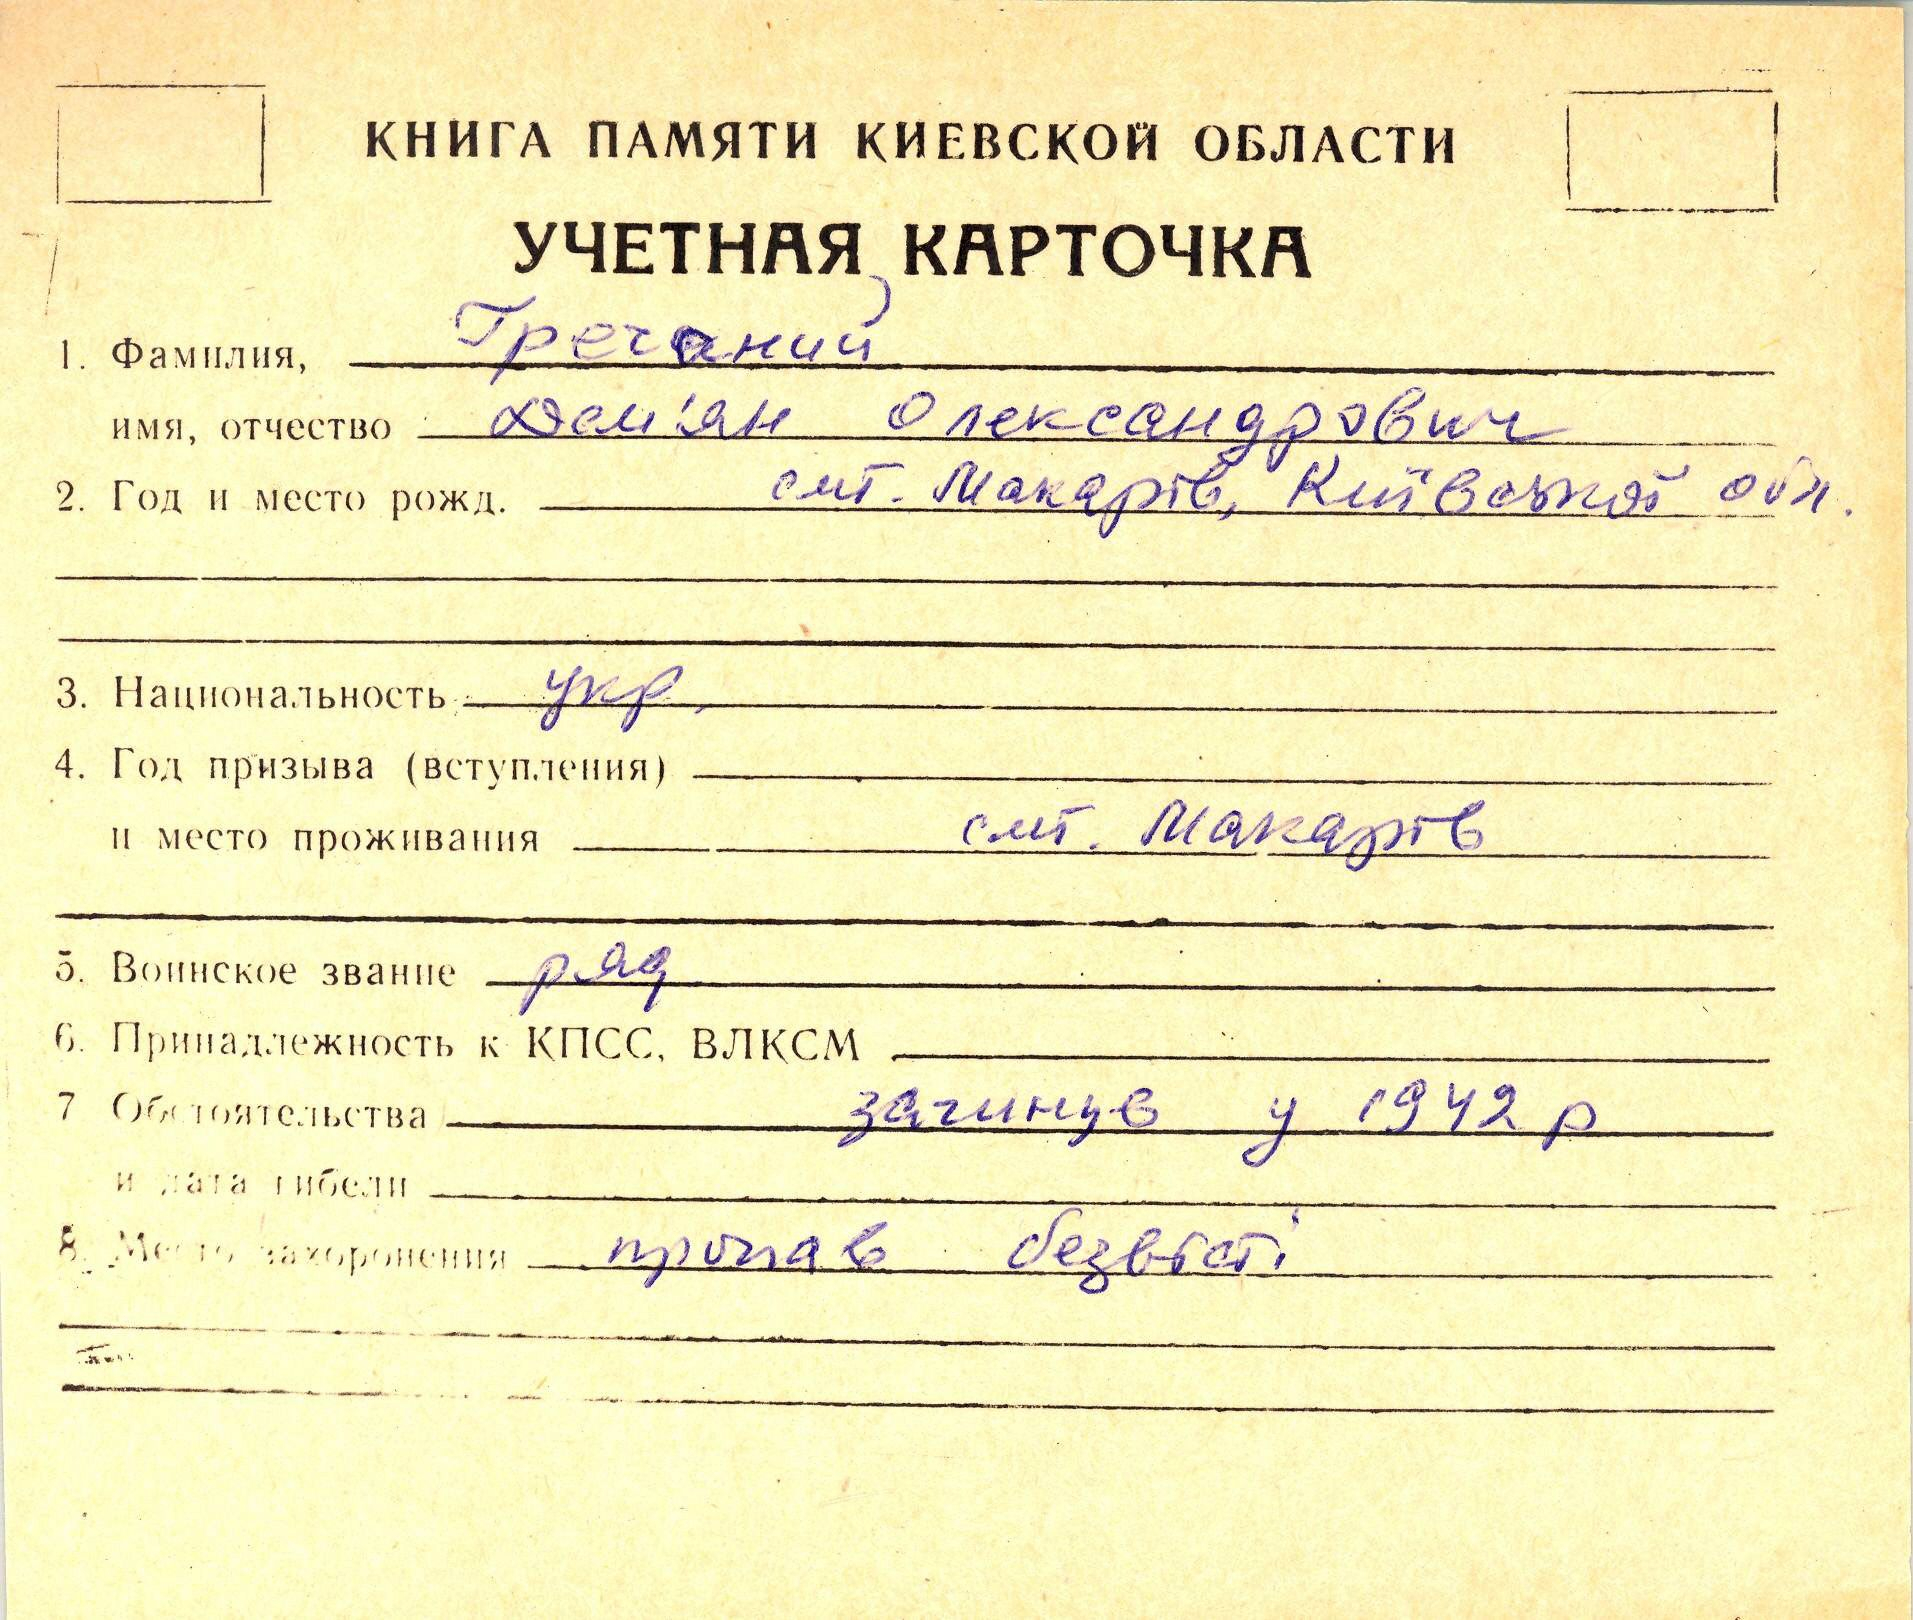 КНИГА ПАМЯТИ КИЕВСКОЙ ОБЛАСТИ
УЧЕТНАЯ КАРТОЧКА
1. Фамилия, Гречаний
имя, отчество Дем'ян Олександрович
2. Год и место рожд. смт. Макарів, Київської обл.
3. Национальность укр.
4. Год призыва (вступления)
и место проживания смт. Макарів
5. Воинское звание ряд
6. Принадлежность к КПСС, ВЛКСМ
7 Обстоятельства загинув у 1942 р
и дата гибели
8. Место захоронения пропав безвісті